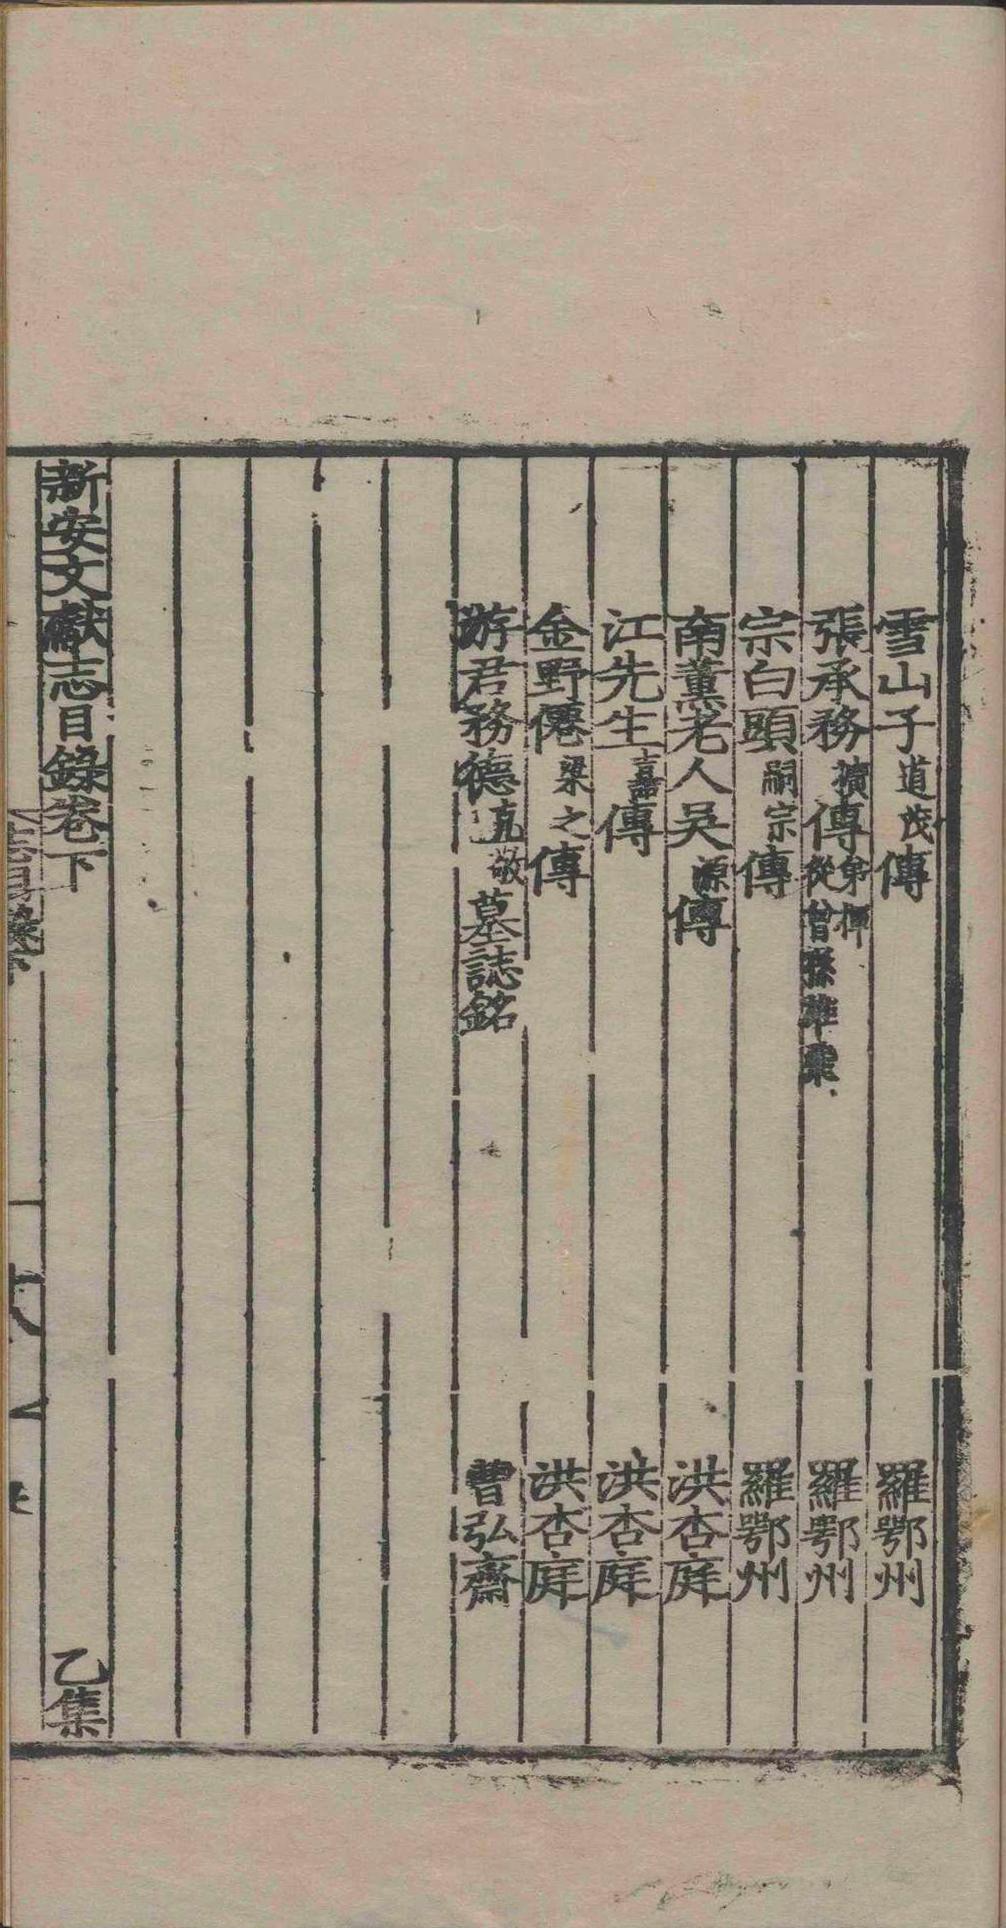 雪山子道茂傳 羅鄂州
張承務擴傳弟揮從曾孫師杲 羅鄂州
宗白頭嗣宗傳 羅鄂州
南薰老人吳源傳 洪杏庭
江先生嚞傳 洪杏庭
金野僊梁之傳 洪杏庭
游君務德克敬墓誌銘 曹弘齋
新安文獻志目錄卷下 乙集